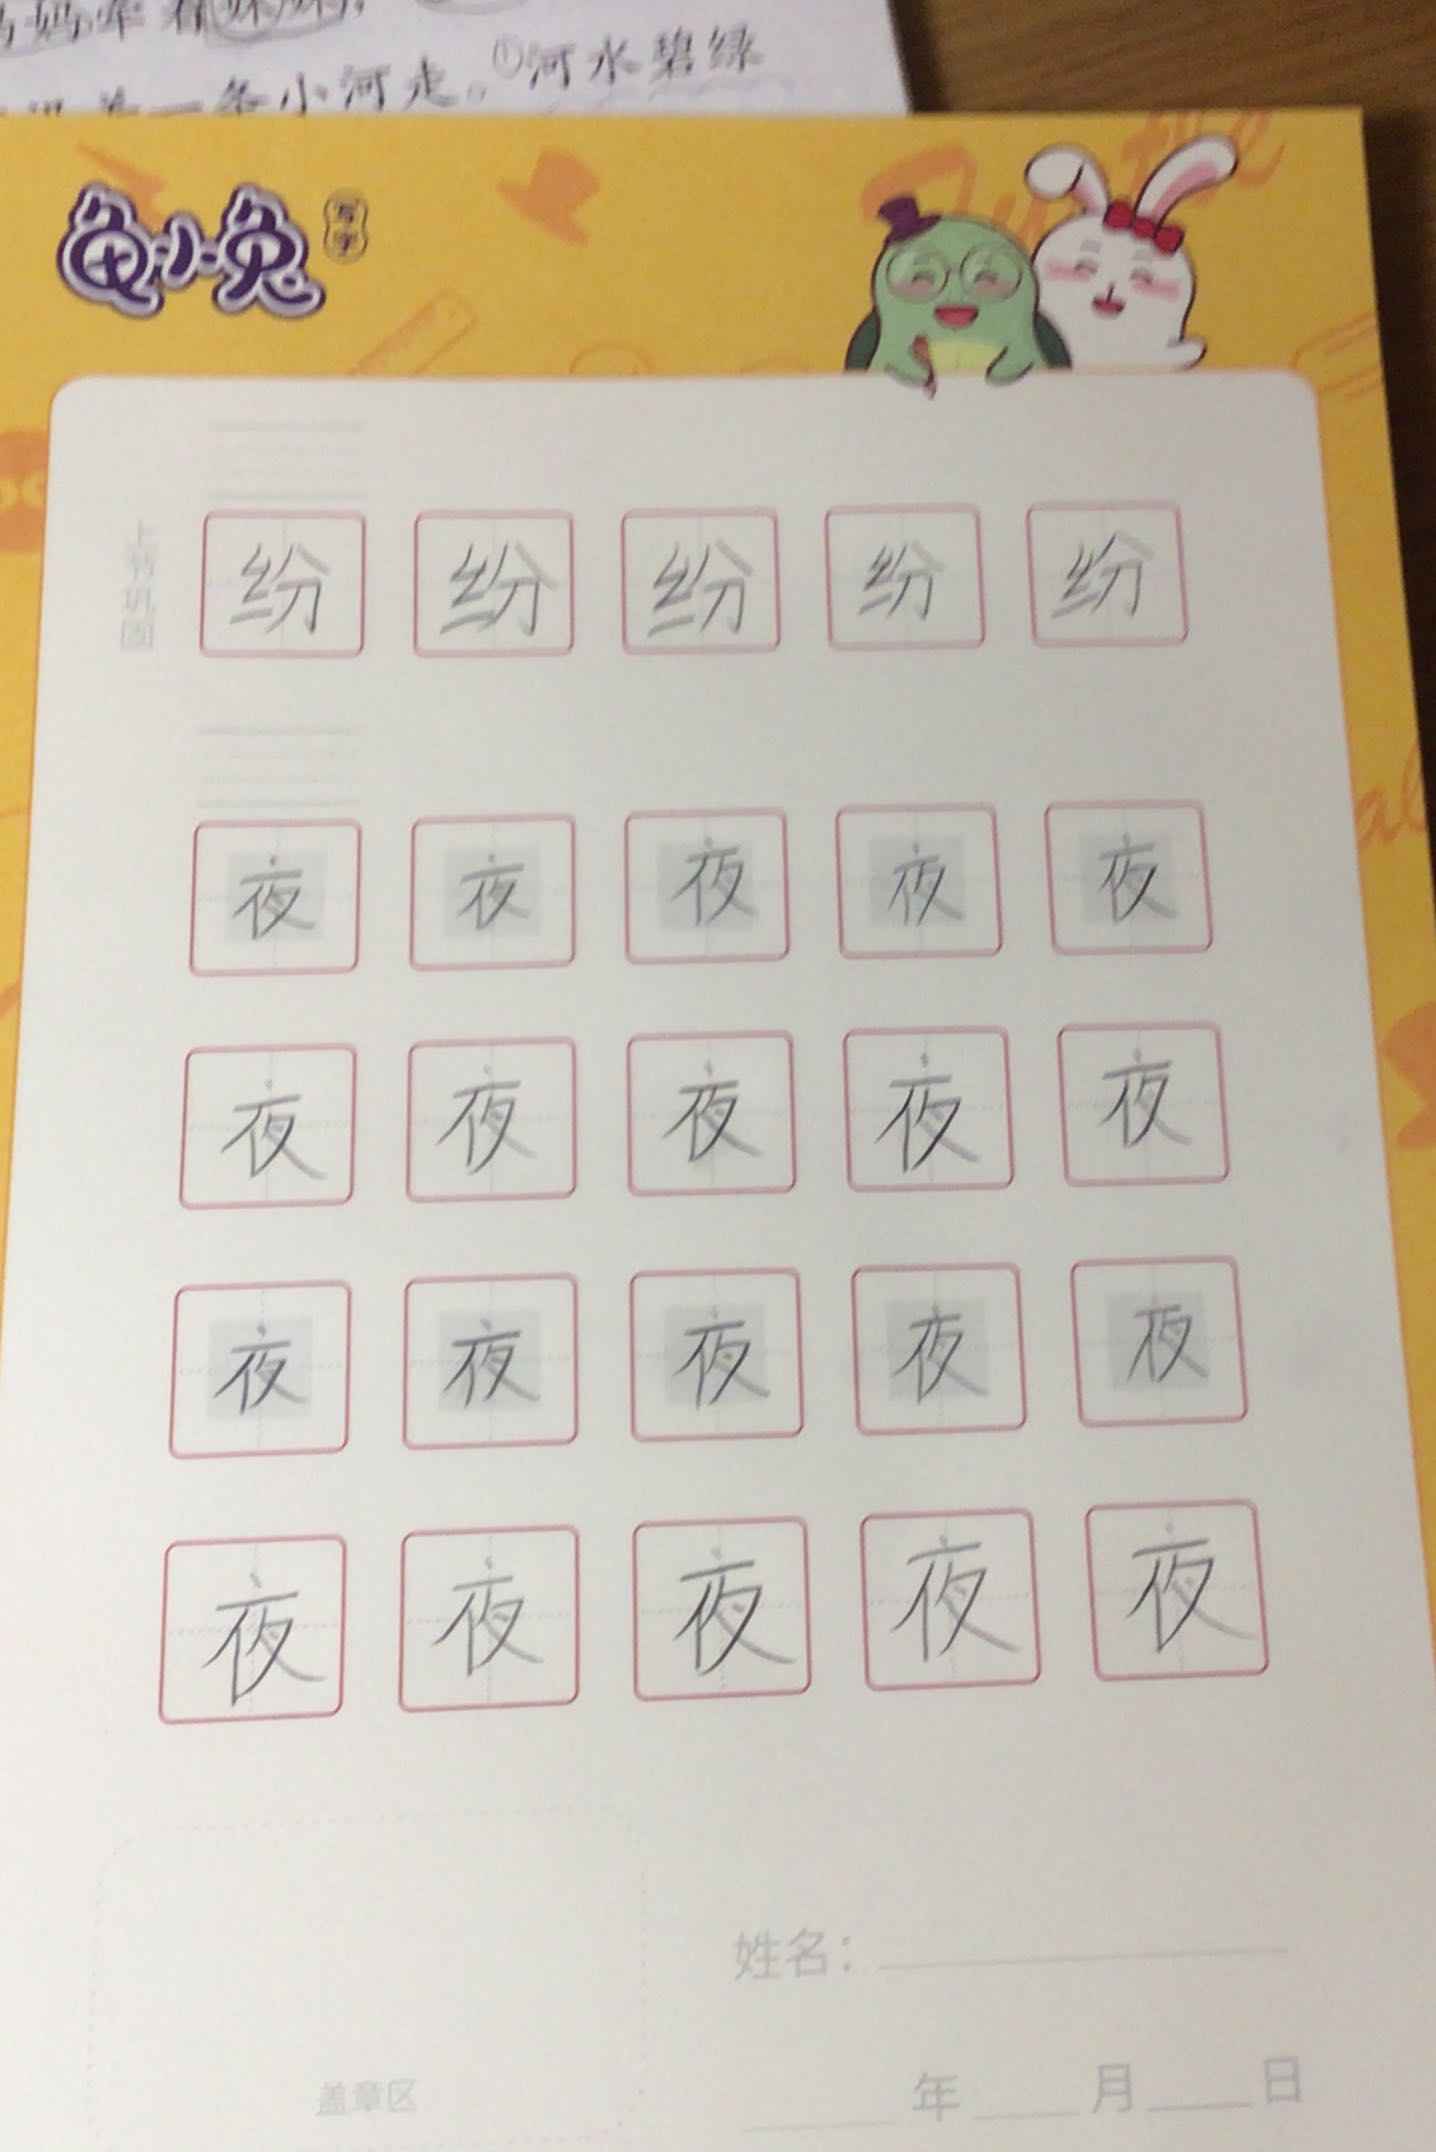 妈牵着妹妹，
一条小河走。①河水碧绿
龟小兔 写字
上节巩固
纷 纷 纷 纷 纷
夜 夜 夜 夜 夜
夜 夜 夜 夜 夜
夜 夜 夜 夜 夜
夜 夜 夜 夜 夜
姓名：
盖章区
年 月 日